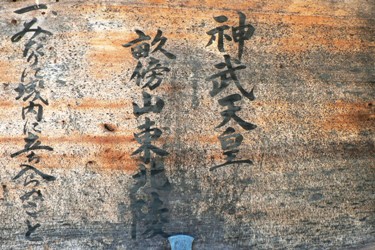 神武天皇
畝傍山東北陵
一みだりに域内に立ち入らぬこと